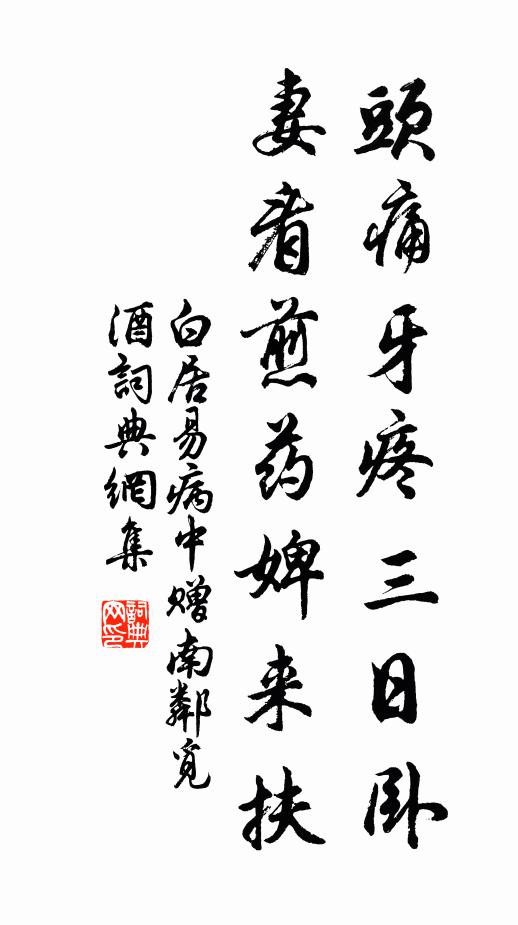 頭痛牙疼三日卧
妻看煎药婢来扶
白居易病中赠南鄰覓
酒詞典網集
詞典
网印